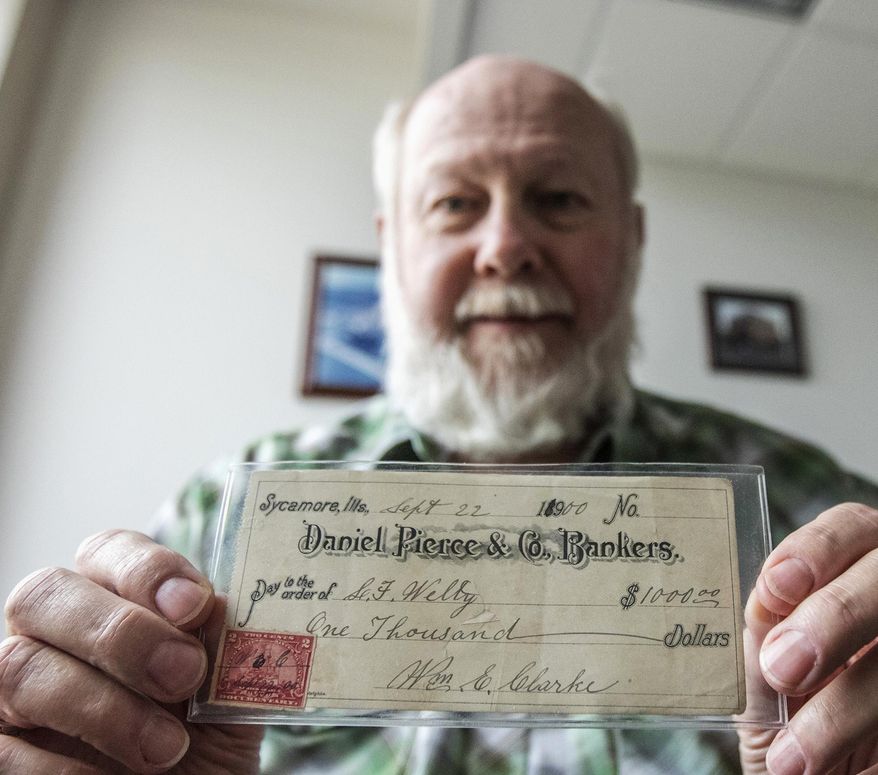 Sycamore, Ills, Sept 22 1900 No.
Daniel Pierce & Co., Bankers.
Pay to the order of S. F. Welby $1000.00
One Thousand Dollars
Wm E. Clarke
2 TWO CENTS 2
DOCUMENTARY